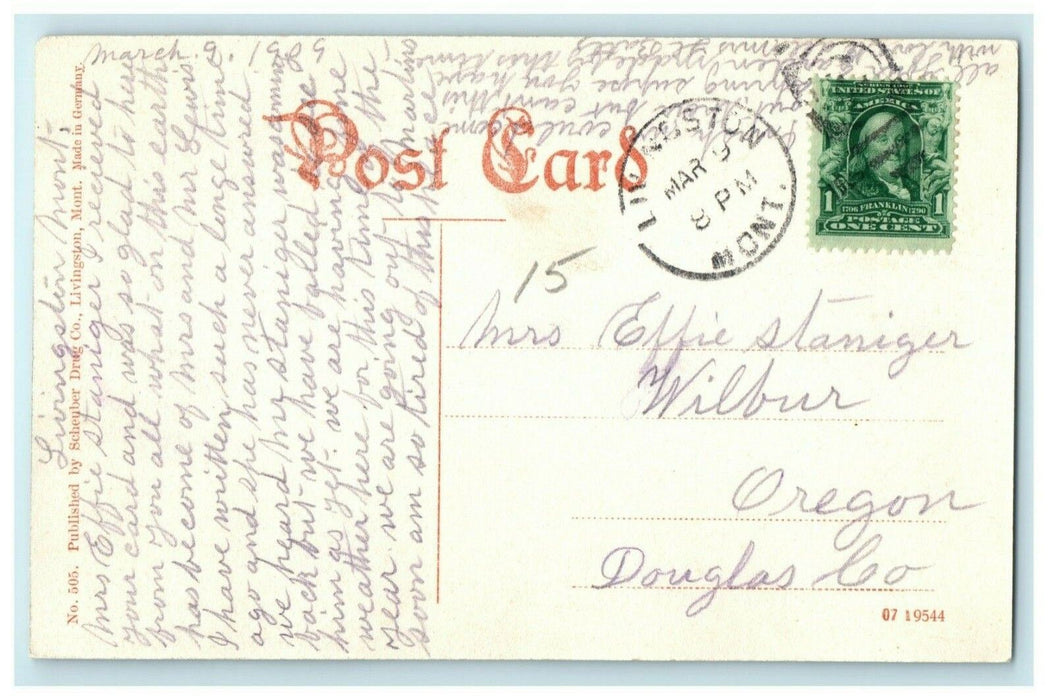 No. 505. Published by Scheuber Drug Co., Livingston, Mont. Made in Germany.
Post Card
LIVINGSTON
MAR 9
8 PM
MONT.
UNITED STATES OF
AMERICA
1 1
1706 FRANKLIN 1790
POSTAGE
ONE CENT
15
Mrs Effie Staniger
Wilbur
Oregon
Douglas Co
07 19544
Livingston Mont.
March. 9. 1909
Mrs Effie Staniger I received
your card and was so glad to hear
from you all what on this earth
has become of Mrs and Mr Lewis
I have written such a long time
ago and she has never answered
we heard Mr Staniger was coming
back but we have failed to see
him as yet. we are having fine
weather here for this time of the
year we are going out to
soon am so tired of this